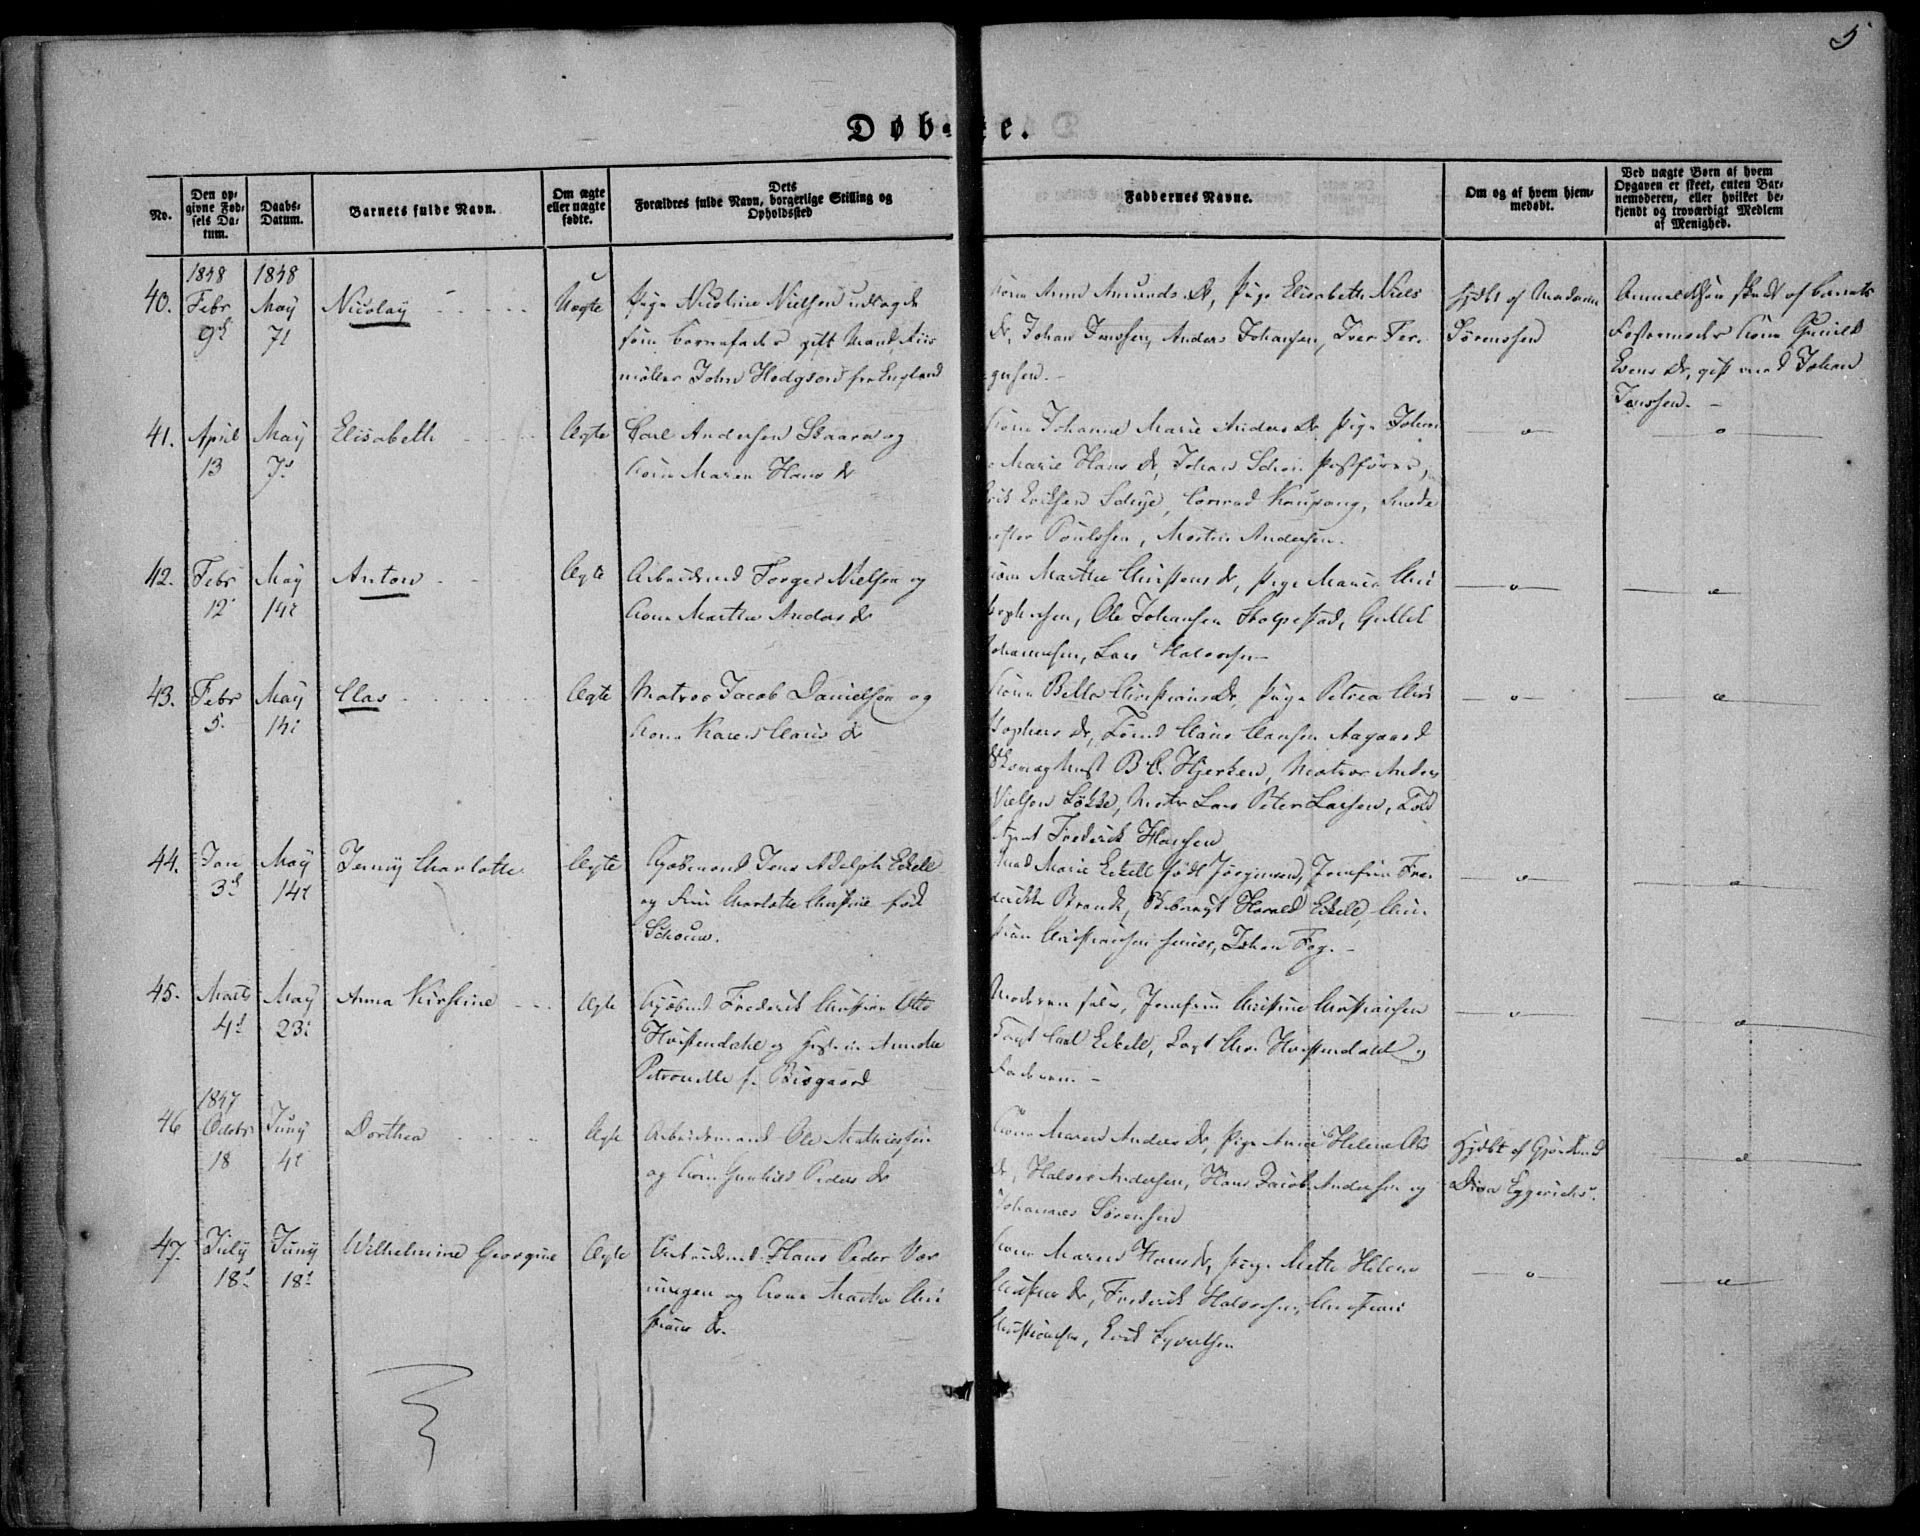 5
Døbte.
No.
Den op-
givne Fød-
sels Da-
tum.
Daabs-
Datum.
Barnets fulde Navn.
Om ægte
eller uægte
fødte.
Dets
Forældres fulde Navn, borgerlige Stilling og
Opholdssted
Faddernes Navne.
Om og af hvem hjem-
medøbt.
Ved uægte Børn af hvem
Opgaven er skeet, enten Bar-
nemoderen, eller hvilket be-
kjendt og troværdigt Medlem
af Menighed.
40.
1848
Febr
9de
1848
May
7de
Nicolay
Uægte
Pige Nicoline Nielsen udlagde
som Barnefader gift Mand
møller John Hodgson fra England
Kone Anne Amunds Dr, Pige Elisabeth Niels
Dr, Johan Jenssen, Anders Johansen, Iver Ter-
gusen.
Hjdbt af Madame
Sørenssen
Anmeldelsen skedt af Barnets
Fostermoder Kone Gunild
Evens Dr, gift med Johan
Jenssen.
41.
April
13
May
7de
Elisabeth
Ægte
Carl Andersen Skaara og
Kone Maren Hans Dr
Kone Johanne Marie Anders Dr Pige Johan
Marie Hans Dr, Johan Schøn Postfører,
Erik Eriksen Solvje, Conrad Kaupang, Smede
mester Poulssen, Martin Andersen.
42.
Febr
12
May
14de
Anton
Ægte
Arbeidsmd Torger Nielsen og
Kone Marthe Anders Dr
Kone Marthe Christens Dr, Pige Maria Chri
stophersen, Ole Johansen Stolpestad, Gullik
Johannesen, Lars Halvorsen
43.
Febr
5.
May
14de
Clas
Ægte
Matros Jacob Danielsen og
Kone Karen Claus Dr
Kone Bella Christians Dr, Pige Petrea Chri
stophers Dr, Claus Clausen Aagaard
Skomagrmst B. C. Hjerken, Matros Anders
Nielsen Løkke, Matr Lars Peter Larsen, Told
betjent Frederik Hanssen
44.
Jan
3de
May
14de
Jenny Charlotte
Ægte
Kjøbmand Jens Adolph Eckell
og Fru Charlotte Christine fød
Schouw.
Mad Marie Eckell født Jørgensen, Jomfru Fre-
derikke Brandt, Skibscapt Harald Eckell, Chri-
stian Christiansen junior, Johan Fog.
45.
Marts
4de
May
23de
Anna Kirstine
Ægte
Kjøbmd Frederik Christian Otto
Hvistendahl og Hustrue Annike
Petronelle f. Bisgaard
Moderen selv, Jomfru Christine Christiansen
Capt Carl Eckell, Capt Chr. Hvistendahl og
Faderen.
46
1847
Octbr
18
Juny
4de
Dorthea
Ægte
Arbeidsmand Ole Mathissen
og Kone Gunhild Peders Dr
Kone Maren Anders Dr, Pige Anne Helene Ols
Dr, Halvor Andersen, Hans Jacob Andersen og
Johannes Sørensen
Hjdbt af Gjordemd
Dina Eggerichs.
47.
July
18de
Juny
18de
Wilhelmine Georgine
Ægte
Arbeidsmd Hans Peder Væ
ningen og Kone Marthe Chri
stians Dr.
Kone Maren Hans Dr, Pige Mette Helene
Christens Dr, Frederik Halvorsen, Christian
Christiansen, Erik Syvertsen